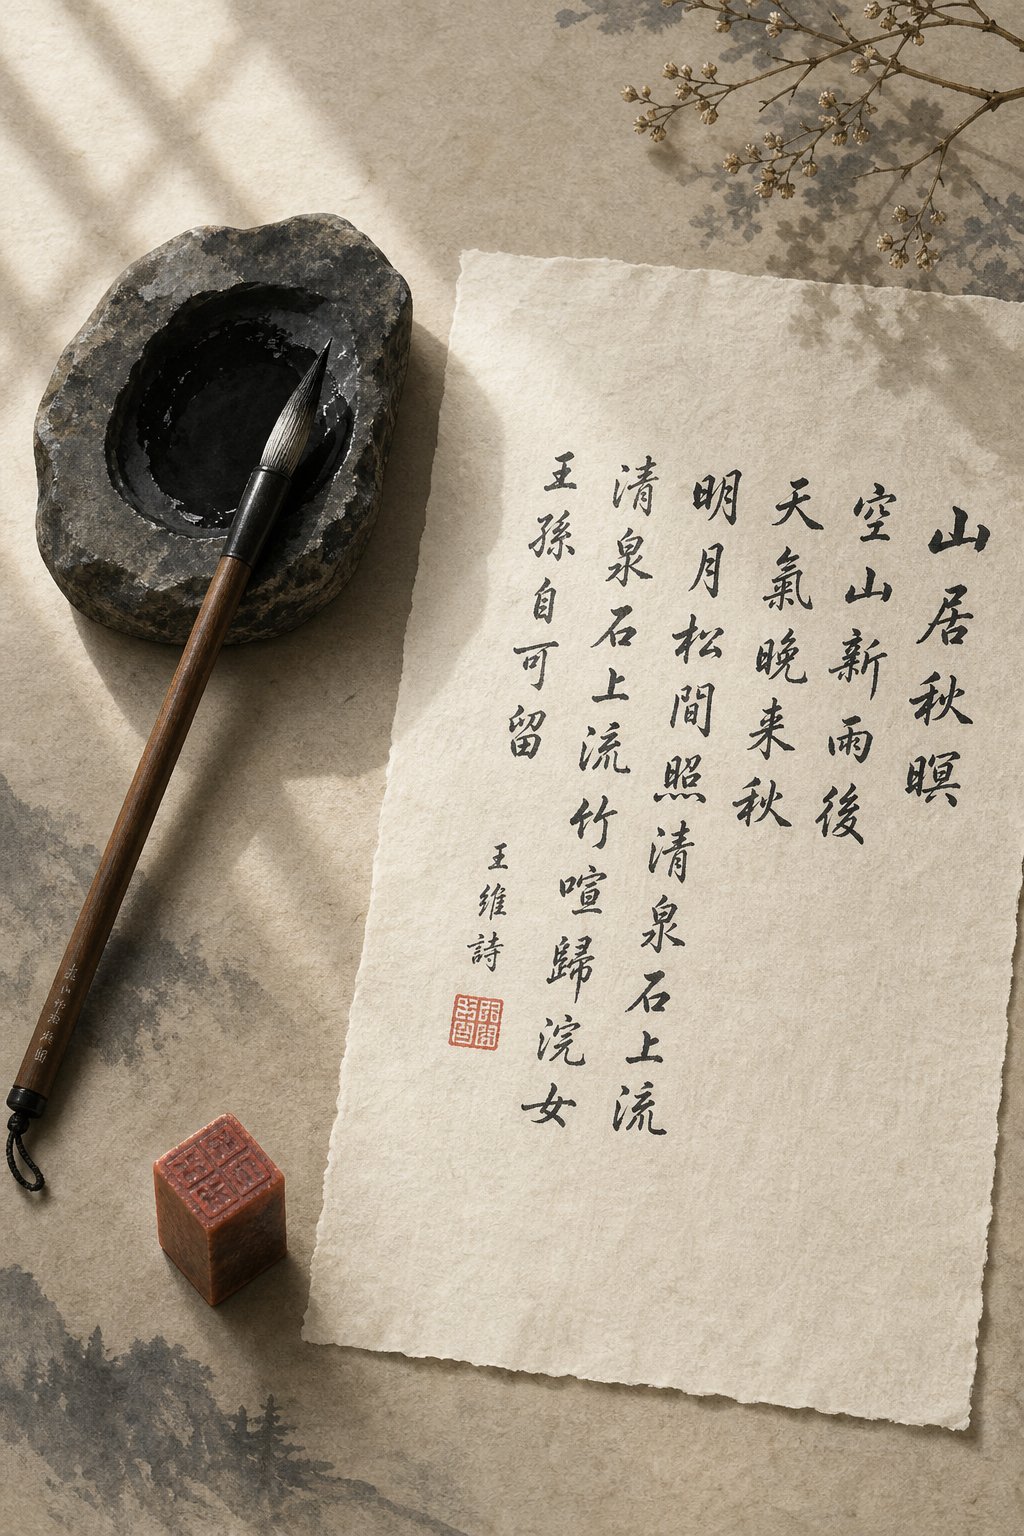 山居秋暝
空山新雨後
天氣晚来秋
明月松間照清泉石上流
清泉石上流竹喧歸浣女
王孫自可留
王維詩